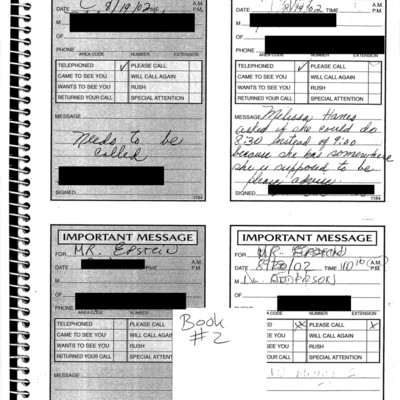 DATE 8/19/02 A.M. P.M.
M
OF
PHONE
AREA CODE NUMBER EXTENSION
TELEPHONED ✓ PLEASE CALL
CAME TO SEE YOU WILL CALL AGAIN
WANTS TO SEE YOU RUSH
RETURNED YOUR CALL SPECIAL ATTENTION
MESSAGE
Needs to be
called
SIGNED 1184
DATE 8/19/02 TIME A.M. P.M.
M
OF
PHONE
AREA CODE NUMBER EXTENSION
TELEPHONED PLEASE CALL
CAME TO SEE YOU WILL CALL AGAIN
WANTS TO SEE YOU RUSH
RETURNED YOUR CALL SPECIAL ATTENTION
MESSAGE Melissa Hanes
asked if she could do
8:30 instead of 9:00
because she has somewhere
she is supposed to be
please advise
SIGNED 1184
IMPORTANT MESSAGE
FOR MR. EPSTEIN
DATE TIME A.M. P.M.
M
OF
AREA CODE NUMBER EXTENSION
TELEPHONED PLEASE CALL
CAME TO SEE YOU WILL CALL
WANTS TO SEE YOU RUSH
RETURNED YOUR CALL SPECIAL ATTENT
MESSAGE
Book
#2
IMPORTANT MESSAGE
FOR MR. EPSTEIN
DATE 8/20/02 TIME A.M. P.M.
M Dr. ANDERSON
OF
CODE NUMBER EXTENSION
PLEASE CALL X
SEE YOU WILL CALL AGAIN
SEE YOU RUSH
YOUR CALL SPECIAL ATTENTION